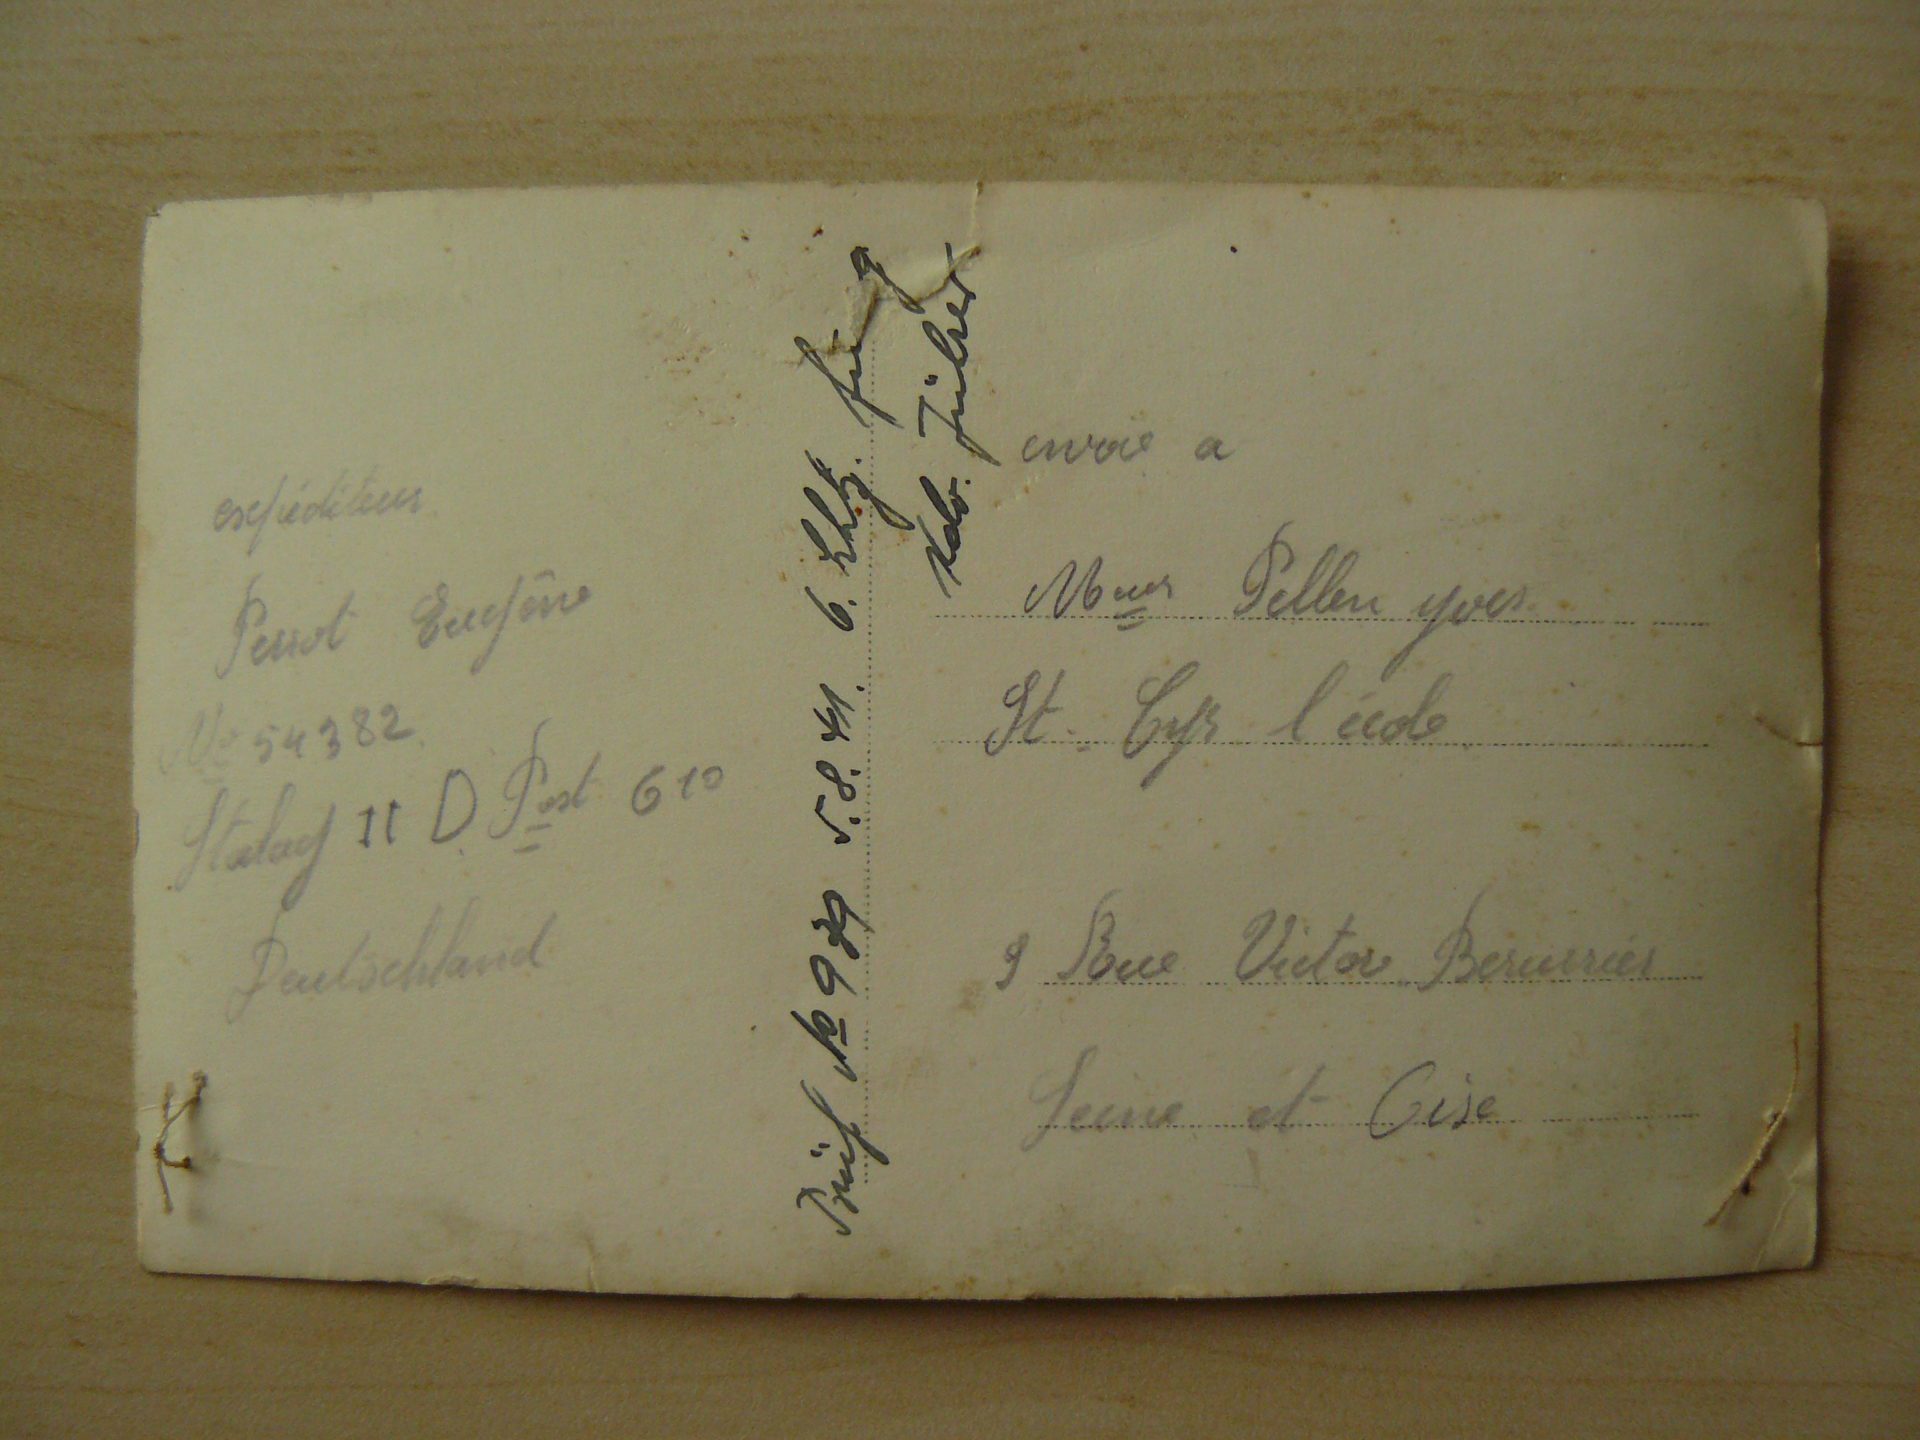 expéditeur
Perrot Eugène
No 54382
Stalag II D Post 610
Deutschland
No 979 5.8.41. 6.
Kdo. Führer
envoie a
Mmeur Pellen yves
St. Cyr l'école
9 Rue Victor
Seine et Oise